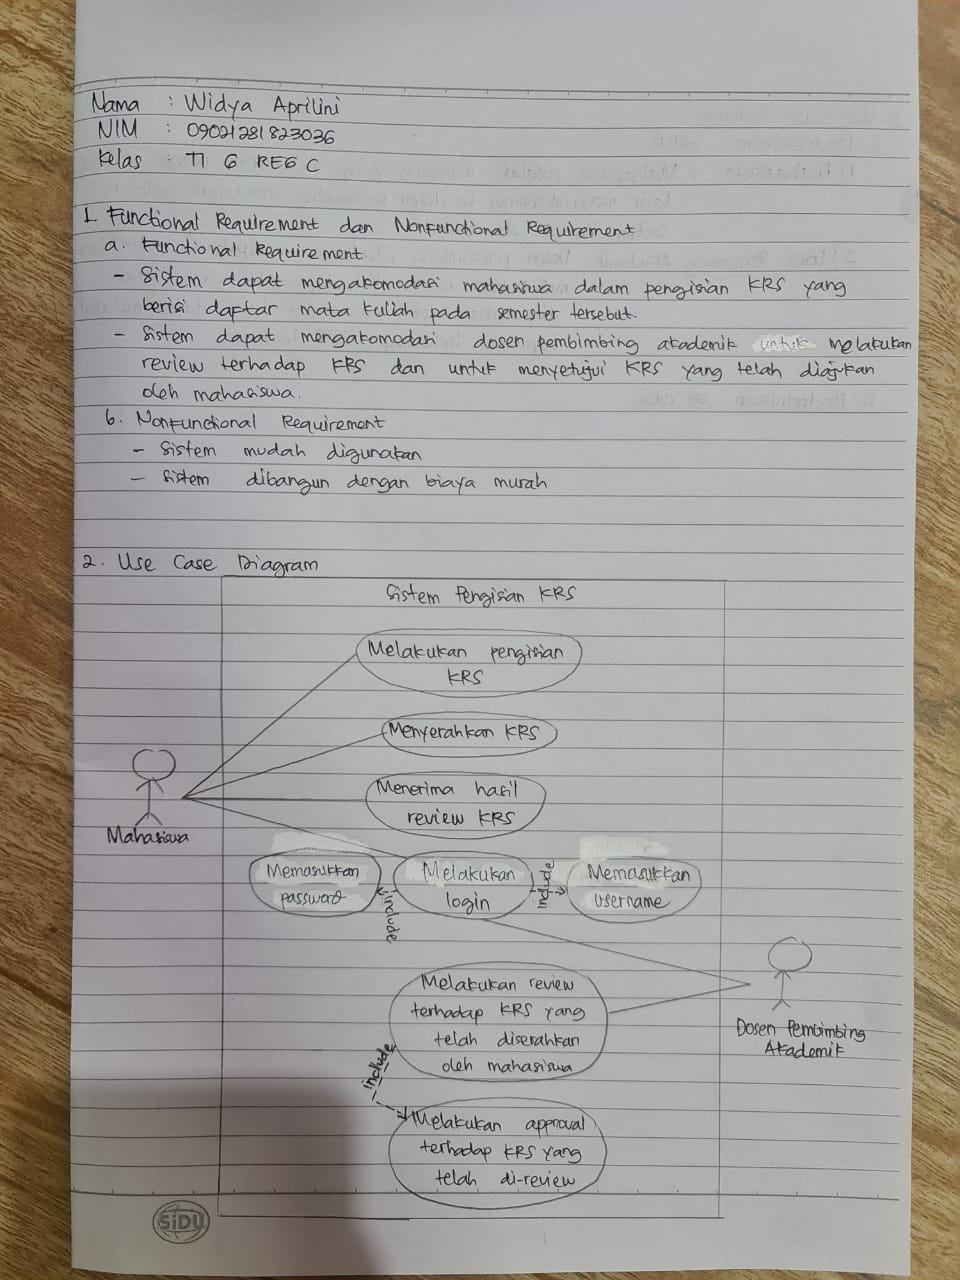 Nama : Widya Aprilini
NIM : 09021281823036
Kelas : TI 6 REG C
1. Functional Requirement dan Nonfunctional Requirement
a. Functional Requirement
- Sistem dapat mengakomodasi mahasiswa dalam pengisian KRS yang
berisi daftar mata kuliah pada semester tersebut.
- Sistem dapat mengakomodasi dosen pembimbing akademik untuk melakukan
review terhadap KRS dan untuk menyetujui KRS yang telah diajukan
oleh mahasiswa.
b. Nonfunctional Requirement
- Sistem mudah digunakan
- Sistem dibangun dengan biaya murah
2. Use Case Diagram
Sistem Pengisian KRS
Melakukan pengisian
KRS
Menyerahkan KRS
Menerima hasil
review KRS
Mahasiswa
Memasukkan
password
include
Melakukan
login
include
Memasukkan
username
Melakukan review
terhadap KRS yang
telah diserahkan
oleh mahasiswa
Dosen Pembimbing
Akademik
include
Melakukan approval
terhadap KRS yang
telah di-review
SiDU